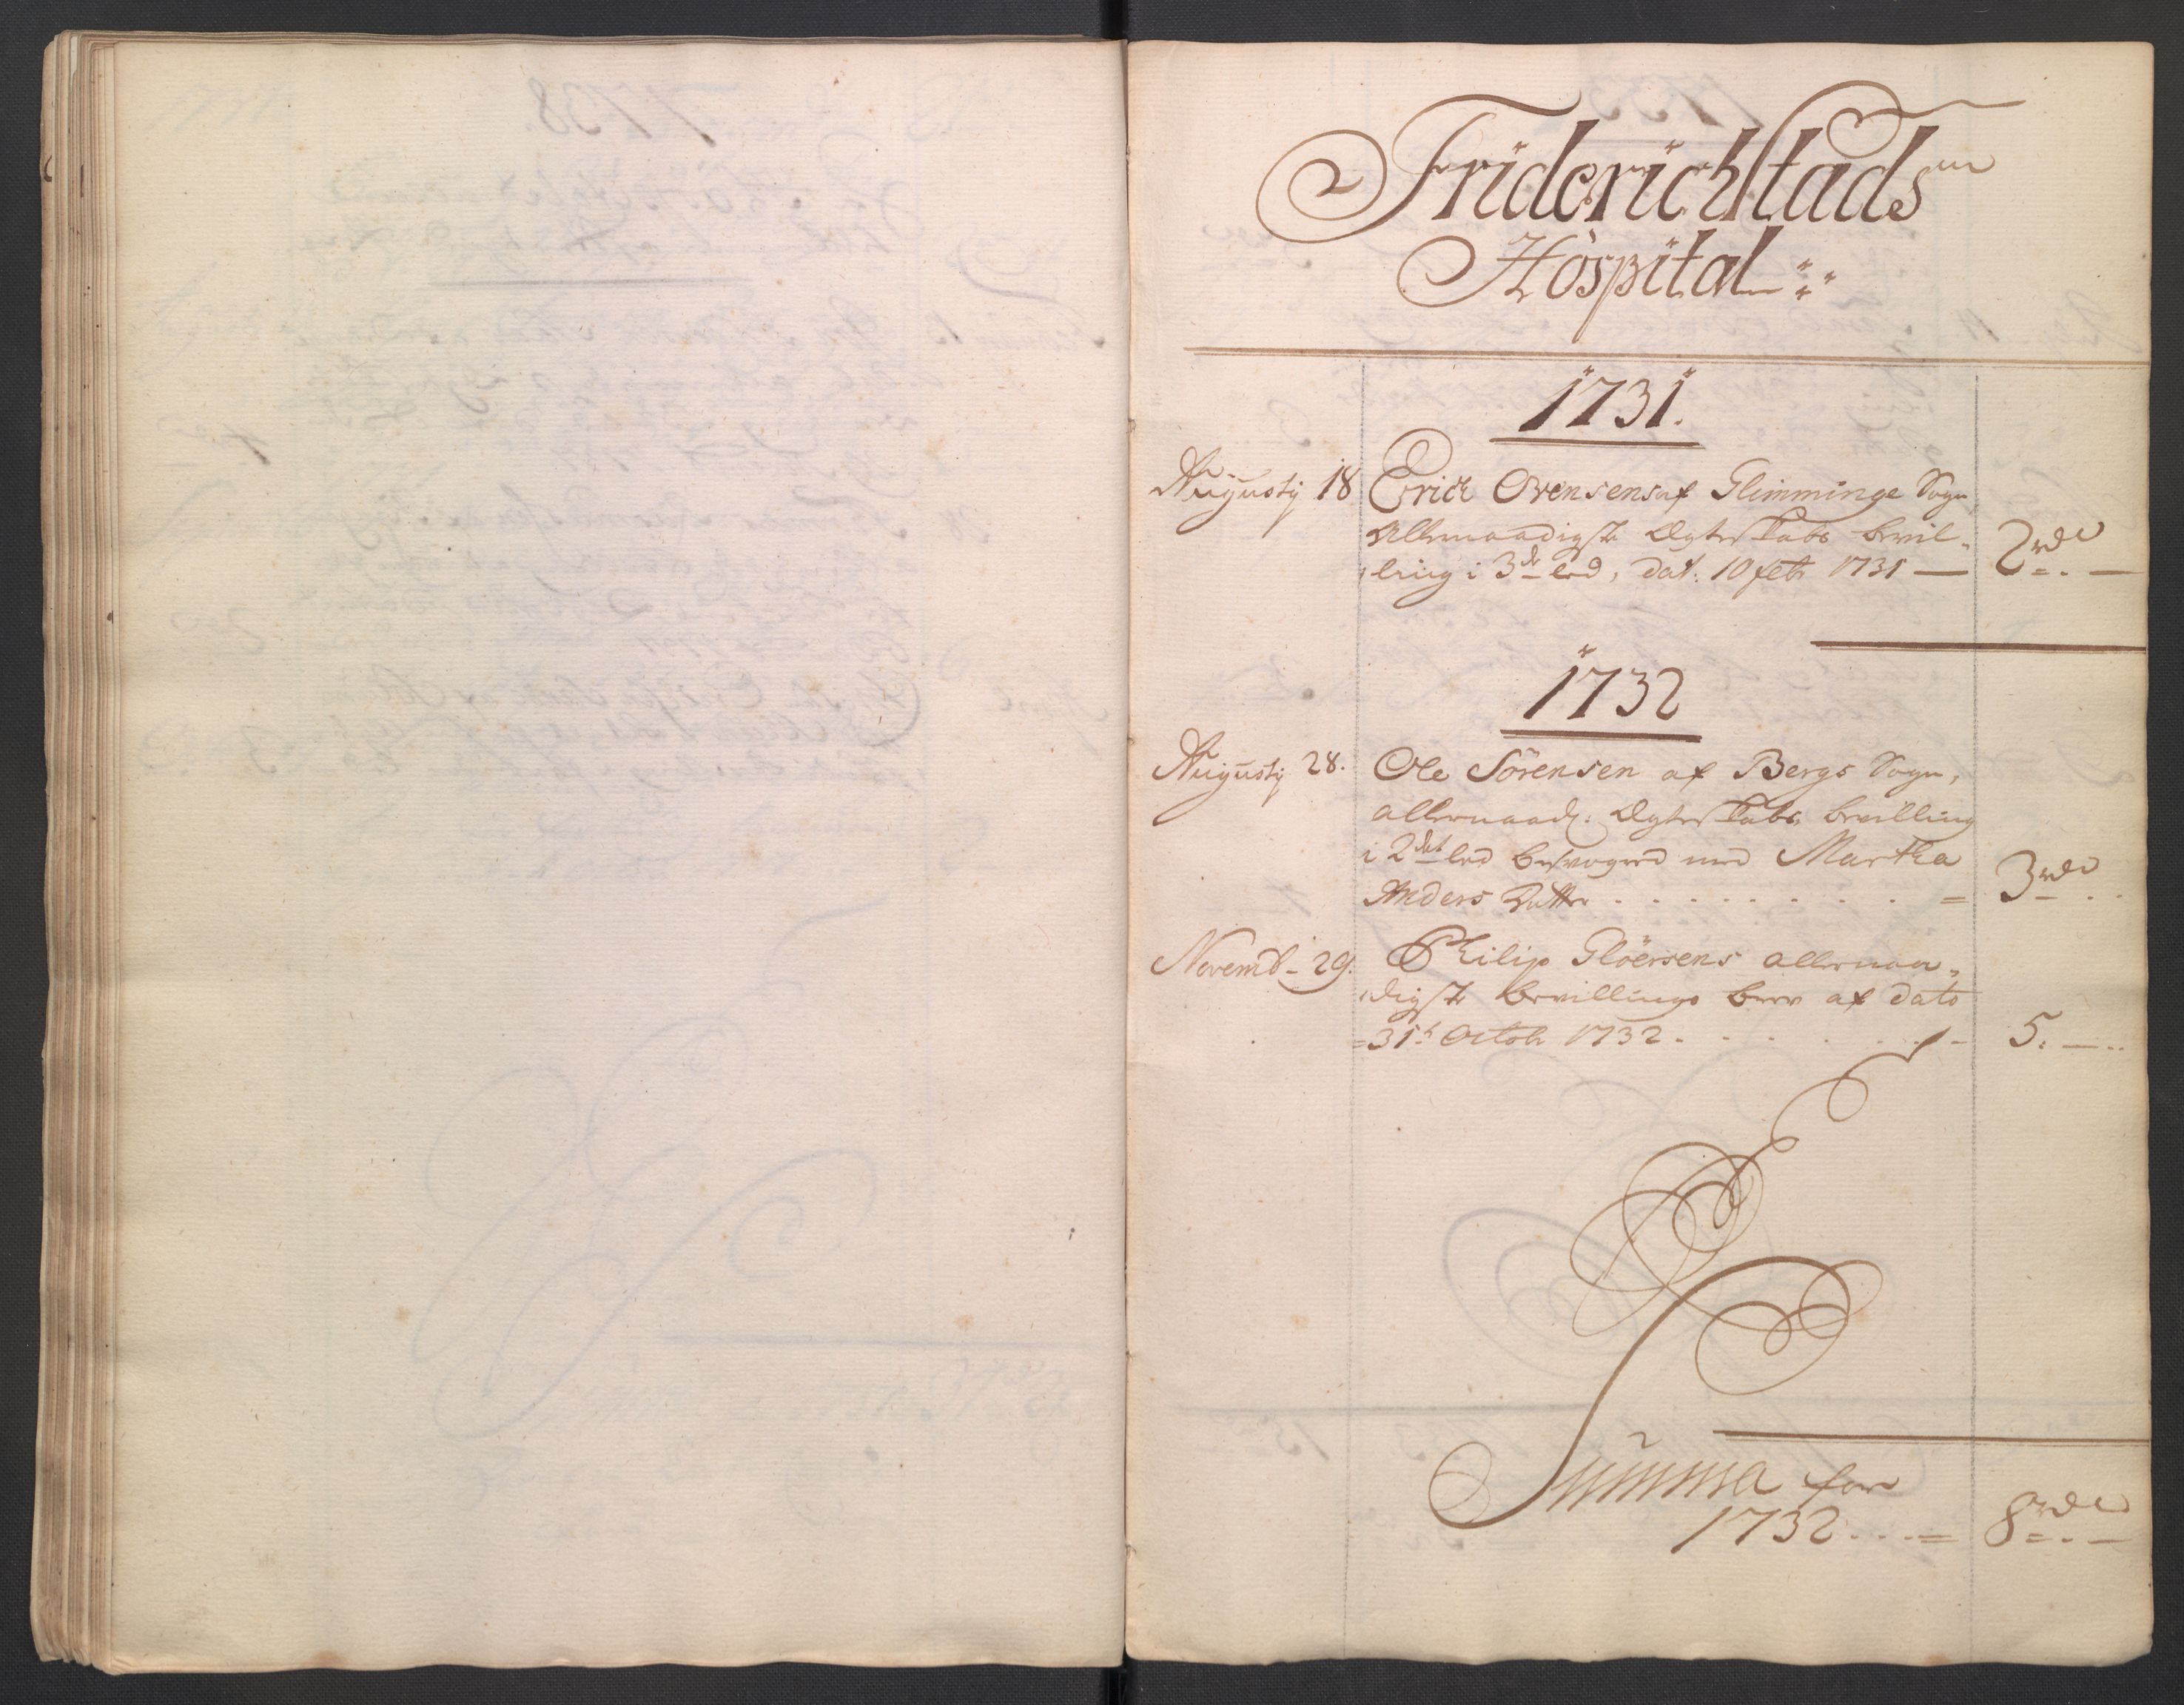 Friderichstads
Hospital
1731.
Augustij 18 Erich Svensens af Glimminge Sogn
Allernaadigste Ægteskabs bevil-
ling i 3de led, dat: 10 febr 1731 — 2 rdr
1732
Augustij 28. Ole Sörensen af Bergs Sogn,
allernaad: Ægteskabs bevilling
i 2det led besvogred med Martha
Anders Datter 3 rdr
Novemb. 29. Philip Glöersens allernaa-
digste bevillings brev af dato
31t Octobr 1732. 5.
Summa for
1732 8 rdr